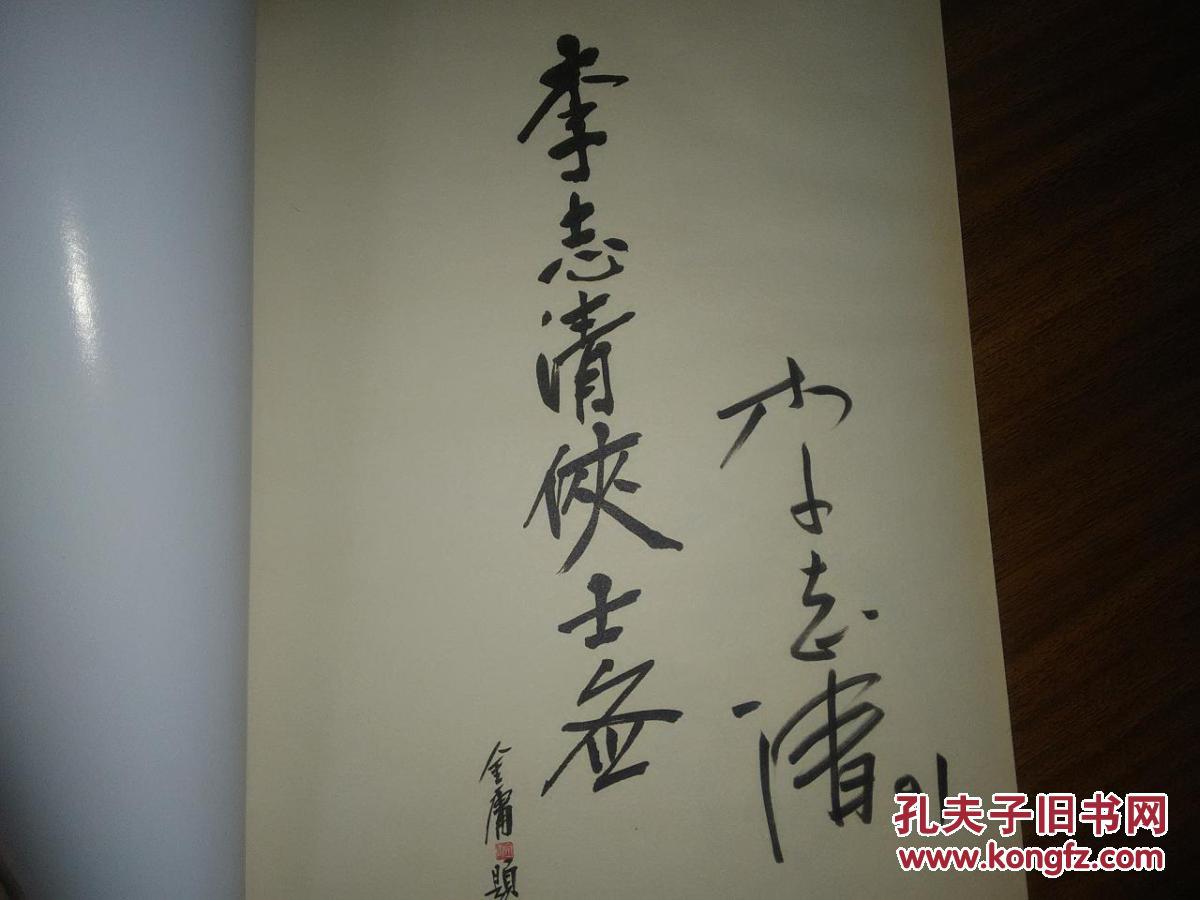 李志清
李志清俠士
金庸題
孔夫子旧书网
www.kongfz.com